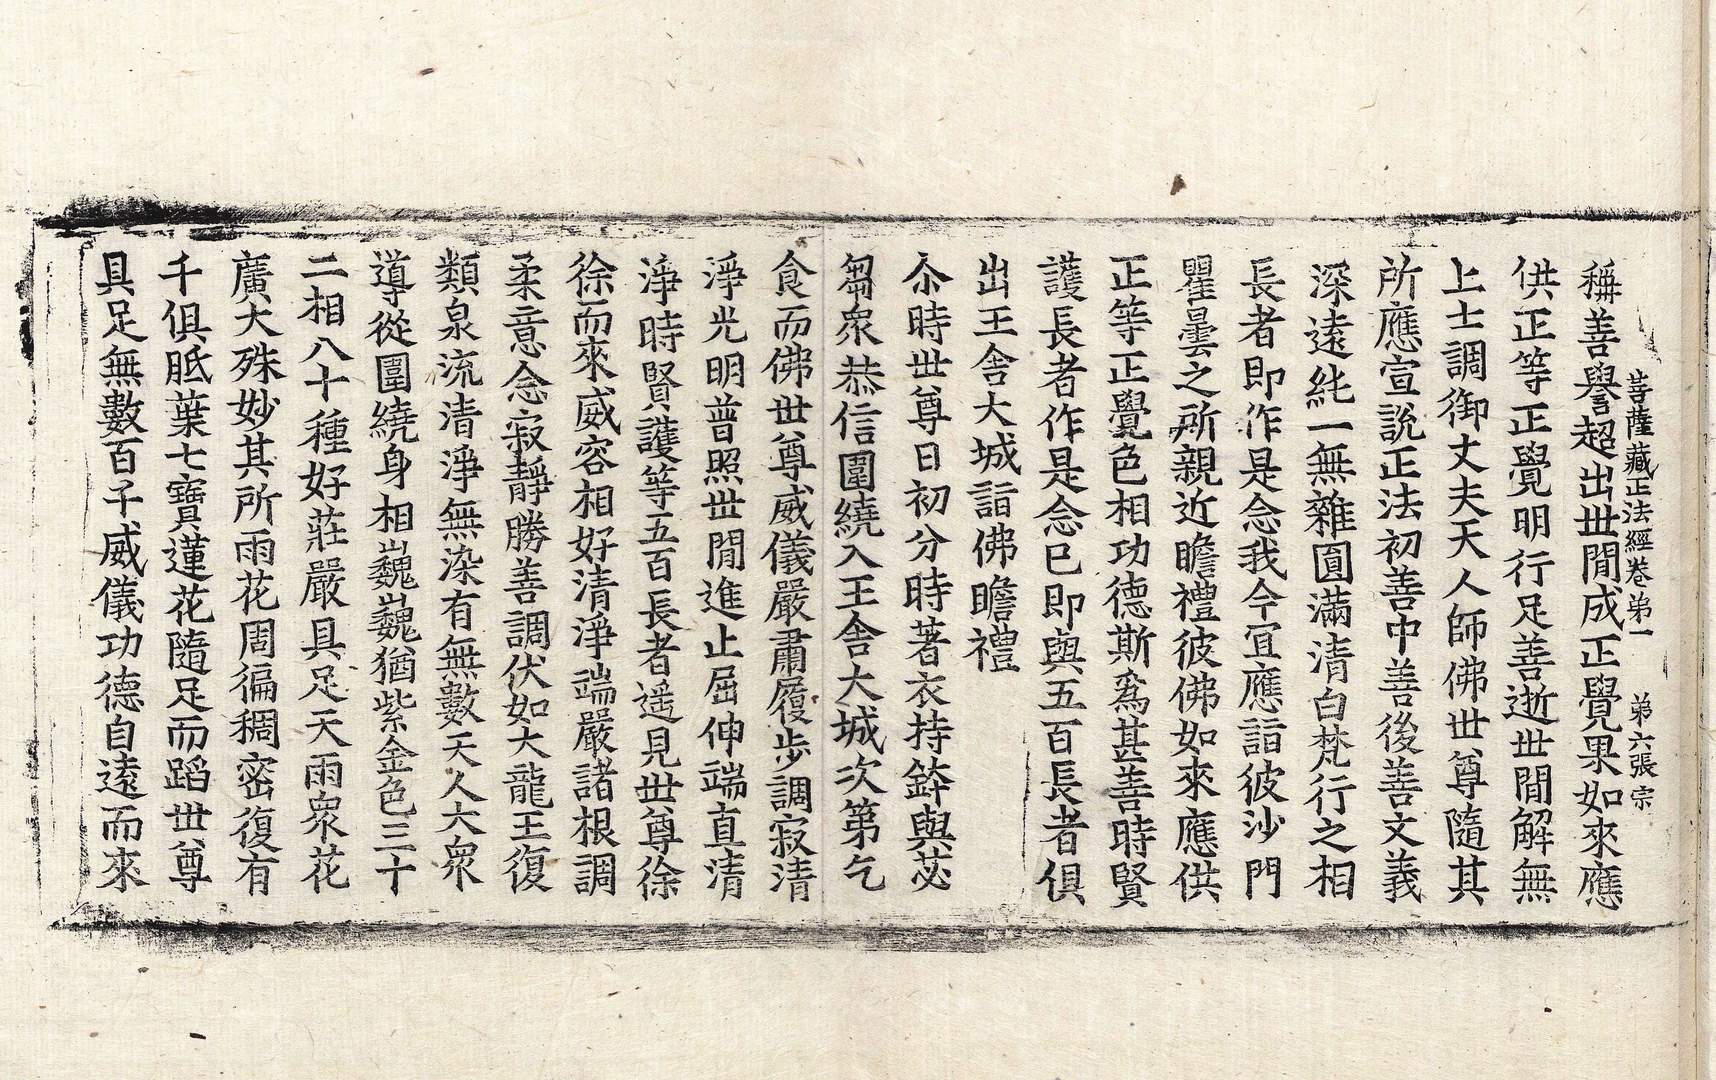 菩薩藏正法經卷第一 第六張 宗
稱善譽超出世閒成正覺果如來應
供正等正覺明行足善逝世閒解無
上士調御丈夫天人師佛世尊隨其
所應宣說正法初善中善後善文義
深遠純一無雜圓滿清白梵行之相
長者即作是念我今宜應詣彼沙門
瞿曇之所親近瞻禮彼佛如來應供
正等正覺色相功德斯爲甚善時賢
護長者作是念已即與五百長者俱
出王舍大城詣佛瞻禮
尒時世尊日初分時著衣持鉢與苾
芻衆恭信圍繞入王舍大城次第乞
食而佛世尊威儀嚴肅履步調寂清
淨光明普照世閒進止屈伸端直清
淨時賢護等五百長者遥見世尊徐
徐而來威容相好清淨端嚴諸根調
柔意念寂靜勝善調伏如大龍王復
類泉流清淨無染有無數天人大衆
導從圍繞身相巍巍猶紫金色三十
二相八十種好莊嚴具足天雨衆花
廣大殊妙其所雨花周徧稠密復有
千俱胝葉七寶蓮花隨足而蹈世尊
具足無數百千威儀功德自遠而來